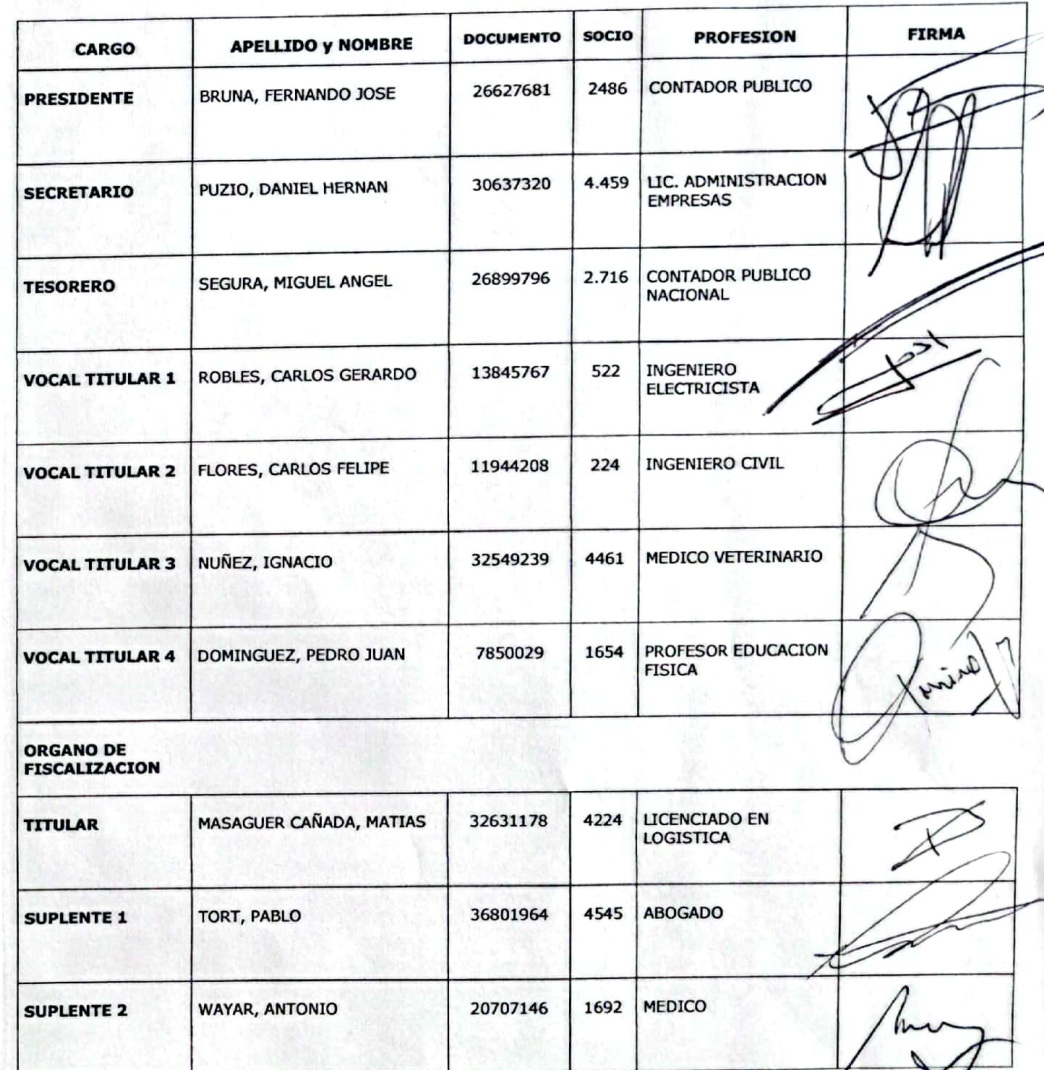 CARGO APELLIDO y NOMBRE DOCUMENTO SOCIO PROFESION FIRMA
PRESIDENTE BRUNA, FERNANDO JOSE 26627681 2486 CONTADOR PUBLICO
SECRETARIO PUZIO, DANIEL HERNAN 30637320 4.459 LIC. ADMINISTRACION
EMPRESAS
TESORERO SEGURA, MIGUEL ANGEL 26899796 2.716 CONTADOR PUBLICO
NACIONAL
VOCAL TITULAR 1 ROBLES, CARLOS GERARDO 13845767 522 INGENIERO
ELECTRICISTA
VOCAL TITULAR 2 FLORES, CARLOS FELIPE 11944208 224 INGENIERO CIVIL
VOCAL TITULAR 3 NUÑEZ, IGNACIO 32549239 4461 MEDICO VETERINARIO
VOCAL TITULAR 4 DOMINGUEZ, PEDRO JUAN 7850029 1654 PROFESOR EDUCACION
FISICA
ORGANO DE
FISCALIZACION
TITULAR MASAGUER CAÑADA, MATIAS 32631178 4224 LICENCIADO EN
LOGISTICA
SUPLENTE 1 TORT, PABLO 36801964 4545 ABOGADO
SUPLENTE 2 WAYAR, ANTONIO 20707146 1692 MEDICO